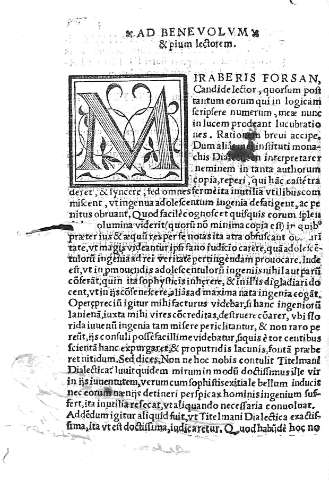 AD BENEVOLVM
& pium lectorem.
MIRABERIS FORSAN,
Candide lector, quorsum post
tantum eorum qui in logicam
scripsere numerum, meæ nunc
in lucem prodeant lucubratio
nes. Rationem breui accipe.
Dum aliàs instituti mona
chis Dialecticen interpretarer
neminem in tanta authorum
copia, reperi, qui hāc castè tra
deret, & syncere, sed omnes fermè ita inutilia vtilibus com
miscent, vt ingenua adolescentum ingenia defatigent, ac pe
nitus obruant. Quod facilè cognoscet quisquis eorum
volumina viderit (quorū nō minima copia est) in quib'
præter ius & æquū res per se notas ita atra obfuscant
tate, vt magis videantur ipsi sano iudicio carere, quā adolescē
tulorū ingenia ad rei veritatē pertingendam prouocare. Inde
est, vt in promouendis adolescentulorū ingeniis nihil aut parū
cōferāt, quin ita sophysticis inhærere, & inaniis digladiari do
cent, vt in iis cōsenescere, aliàs ad maxima nata ingenia cogāt.
Operępreciū igitur mihi facturus videbar, si hanc ingeniorū
laniená, iuxta mihi vires cōcreditas, destruere cōarer, vbi flo
rida iuuenū ingenia tam misere periclitantur, & non raro pe
reūt, iisq; consuli posse facillime videbatur, si quis è tot centibus
scientiā hanc expurgaret, & a putridis lacunis, foutā præbe
ret nitidum. Sed dices, Non ne hoc nobis contulit Titelmani
Dialectica? Iuuit quidem mirum in modū doctissimus ille vir
in iis iuuentutem, verum cum sophistis exitiale bellum inducit
nec eorum nænijs detineri perspicax hominis ingenium suf
fert, ita inutilia resecat, vt aliquando necessaria conuoluat.
Addēdum igitur aliquid fuit, vt Titelmani Dialectica exactis
sima, ita vt est doctissima, iudicaretur. Quod habūde hoc no